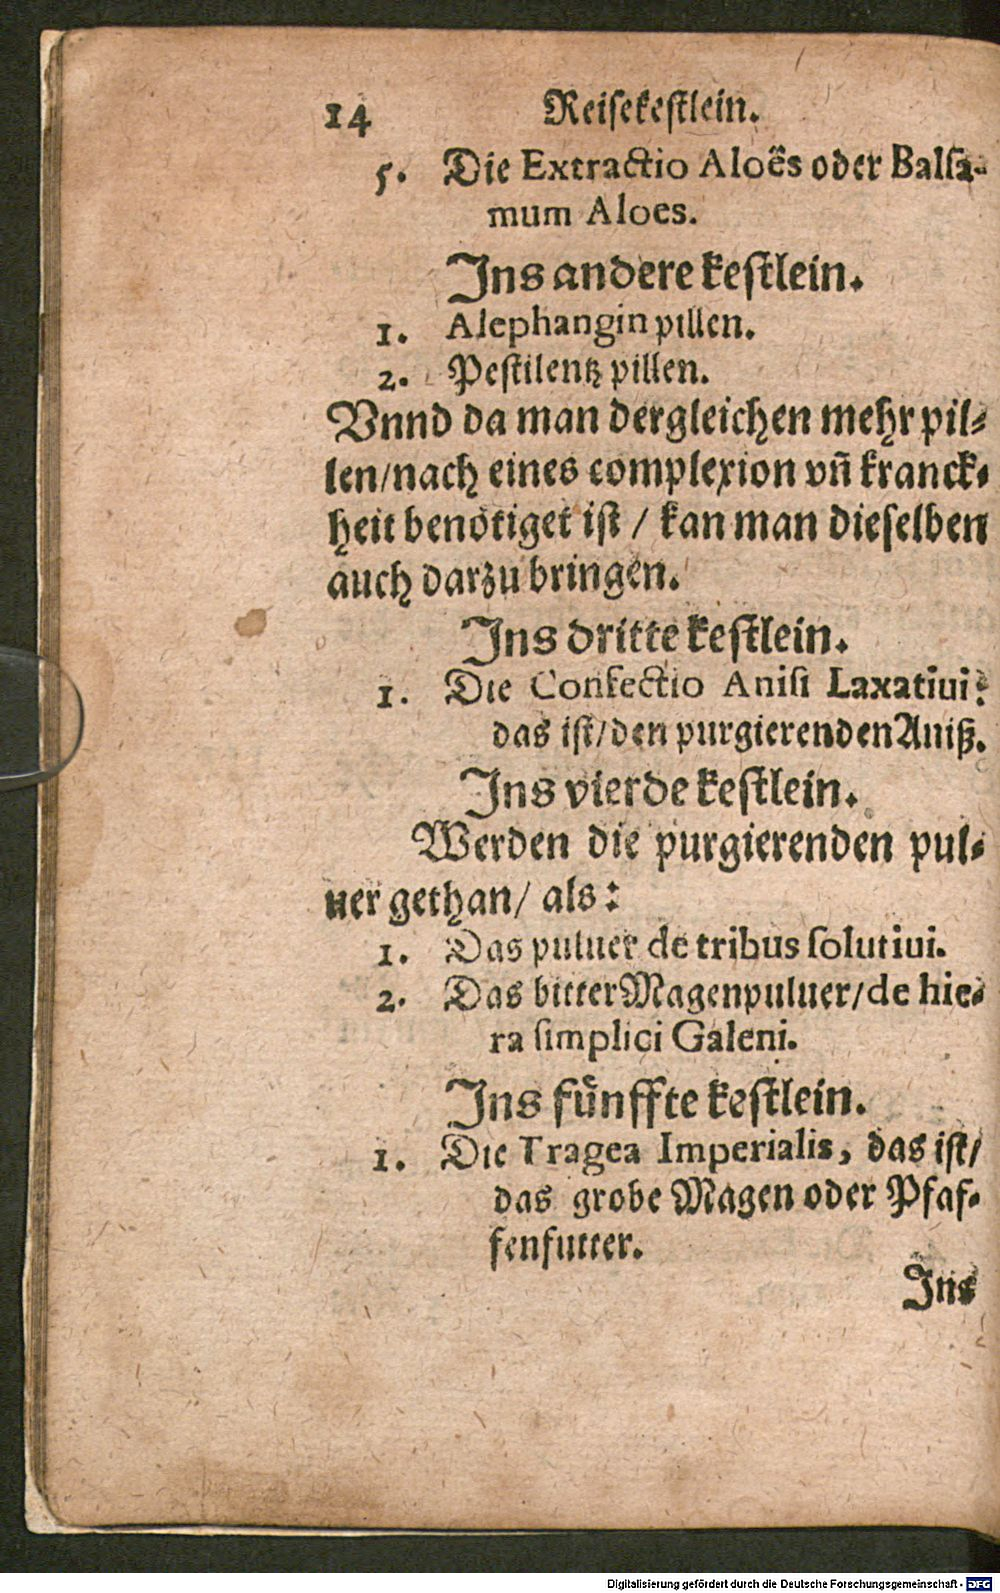 14 Reiſekeſtlein.
5. Die Extractio Aloës oder Balſa-
mum Aloes.
Ins andere keſtlein.
1. Alephangin pillen.
2. Peſtilentz pillen.
Vnnd da man dergleichen mehr pil-
len/nach eines complexion vñ kranck-
heit benötiget iſt / kan man dieſelben
auch darzu bringen.
Ins dritte keſtlein.
1. Die Confectio Aniſi Laxatiui:
das iſt/den purgierenden Aniß.
Ins vierde keſtlein.
Werden die purgierenden pul-
uer gethan/ als:
1. Das puluer de tribus ſolutiui.
2. Das bitter Magenpuluer/de hie-
ra ſimplici Galeni.
Ins fünffte keſtlein.
1. Die Tragea Imperialis, das iſt/
das grobe Magen oder Pfaf-
fenfutter.
Ins
Digitalisierung gefördert durch die Deutsche Forschungsgemeinschaft - DFG